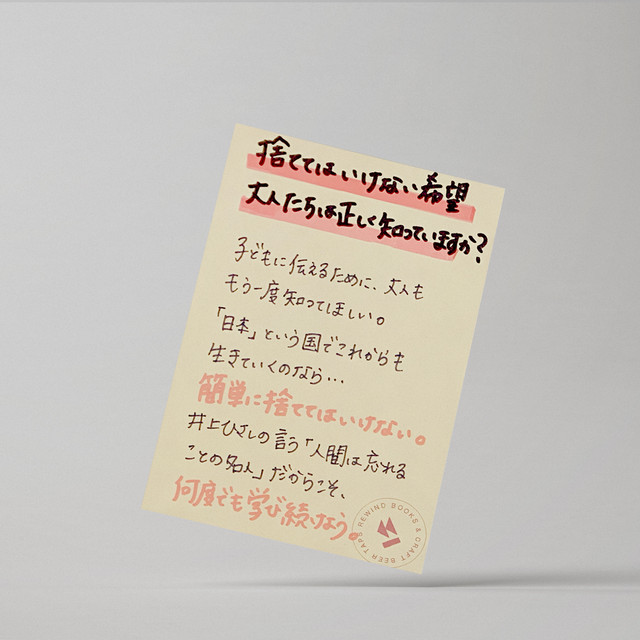 捨ててはいけない希望
大人たちは正しく知っていますか?
子どもに伝えるために、大人も
もう一度知ってほしい。
「日本」という国でこれからも
生きていくのなら…
簡単に捨ててはいけない。
井上ひさしの言う「人間は忘れる
ことの名人」だからこそ、
何度でも学び続けよう。
REWIND BOOKS & CRAFT BEER TAPS